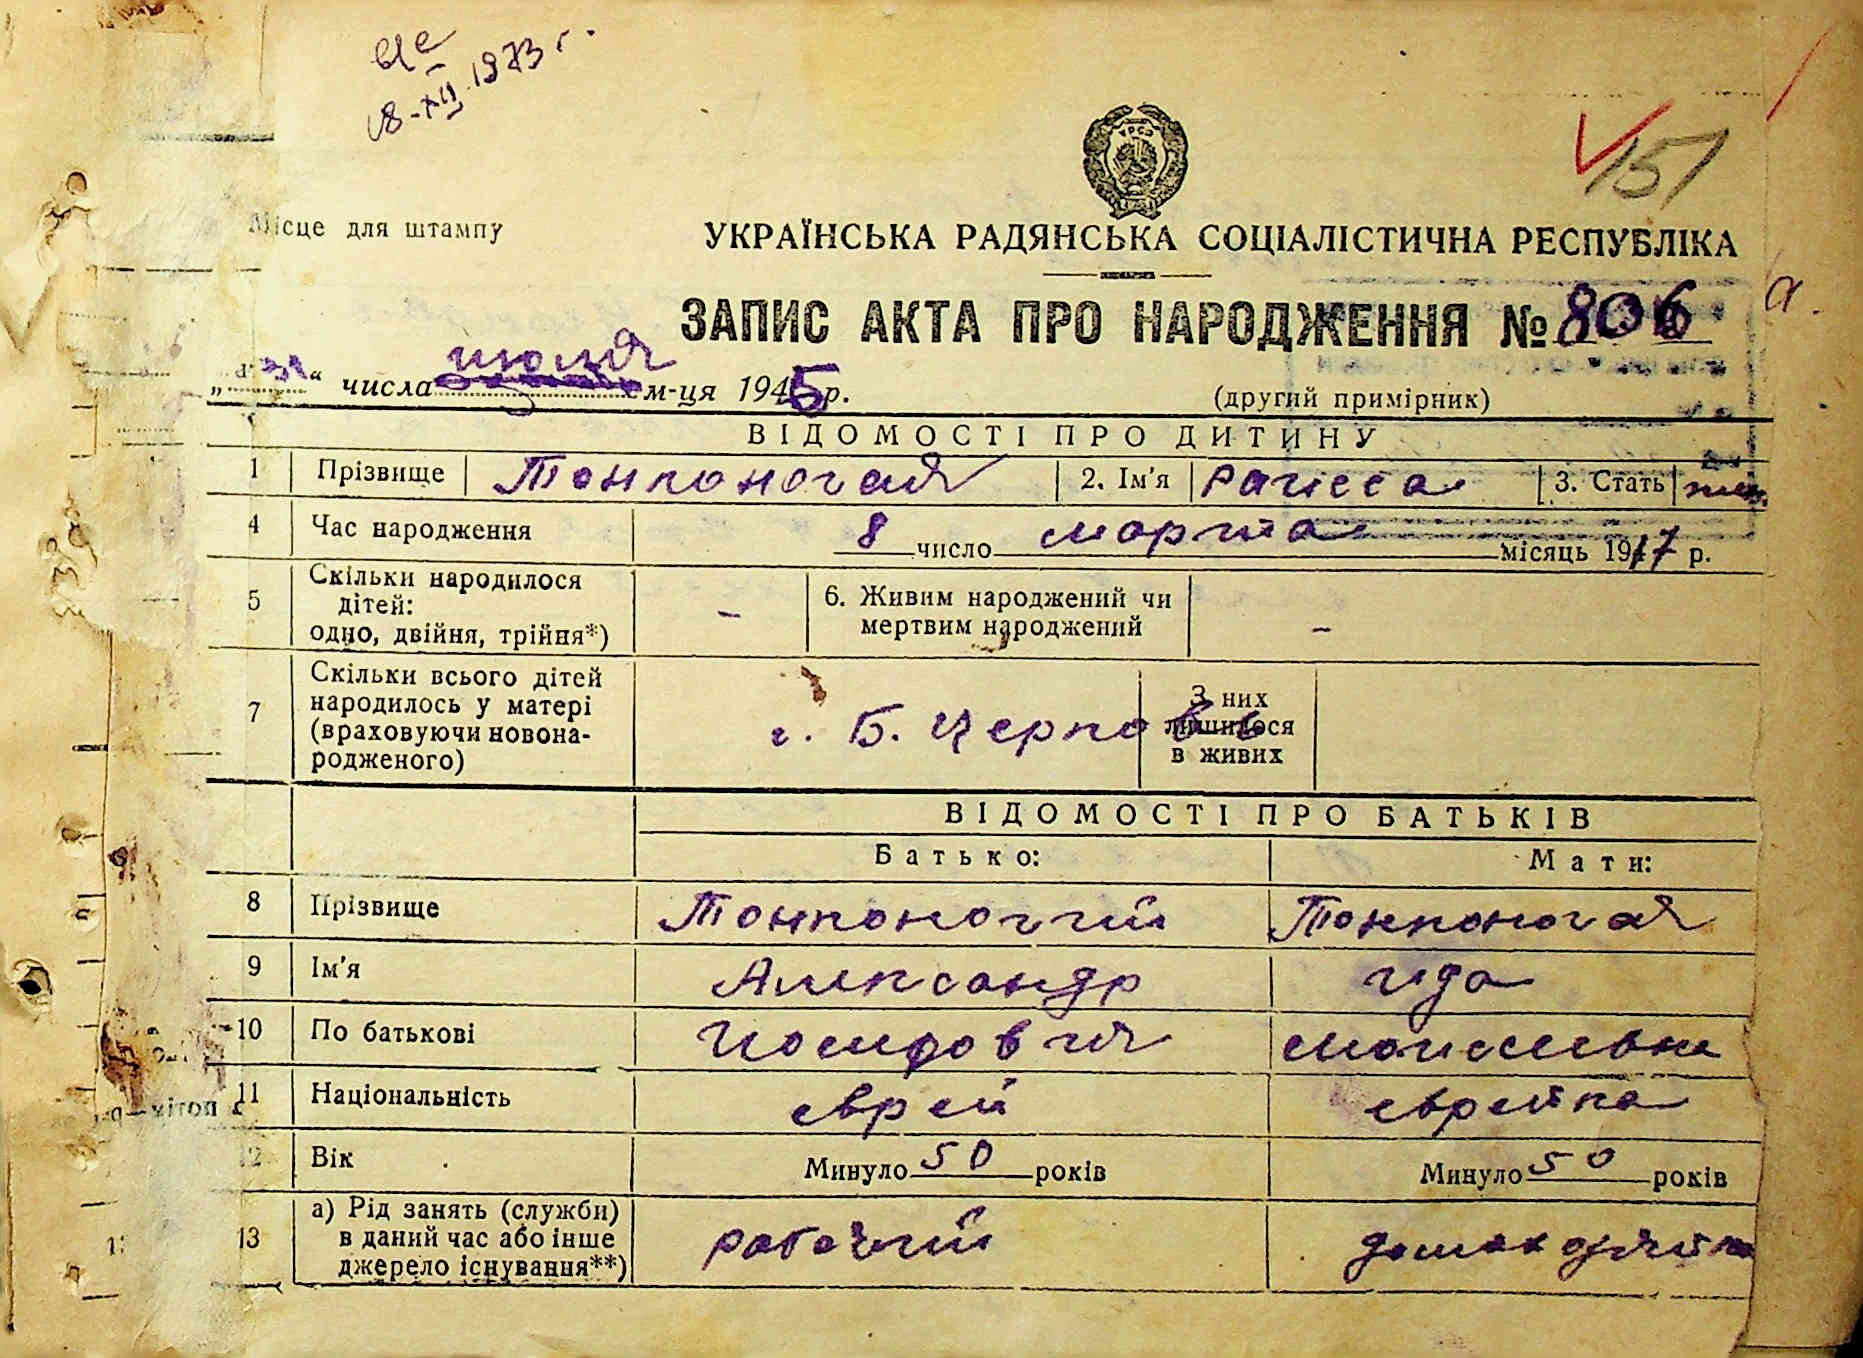 18-XII 1973 г.
151
Місце для штампу
УКРАЇНСЬКА РАДЯНСЬКА СОЦІАЛІСТИЧНА РЕСПУБЛІКА
ЗАПИС АКТА ПРО НАРОДЖЕННЯ № 806
а.
„ “ числа июля м-ця 1945 р.
(другий примірник)
ВІДОМОСТІ ПРО ДИТИНУ
1 Прізвище Тонконогая 2. Ім'я Раиса 3. Стать жен.
4 Час народження 8 число марта місяць 1917 р.
5 Скільки народилося дітей: одно, двійня, трійня*) - 6. Живим народжений чи мертвим народжений -
7 Скільки всього дітей народилось у матері (враховуючи новонародженого) г. Б. Церковь З них лишилося в живих
ВІДОМОСТІ ПРО БАТЬКІВ
Батько: Мати:
8 Прізвище Тонконогий Тонконогая
9 Ім'я Александр Ида
10 По батькові Иосифович Моисеевна
11 Національність еврей еврейка
12 Вік Минуло 50 років Минуло 50 років
13 а) Рід занять (служби) в даний час або інше джерело існування**) рабочий домохозяйка